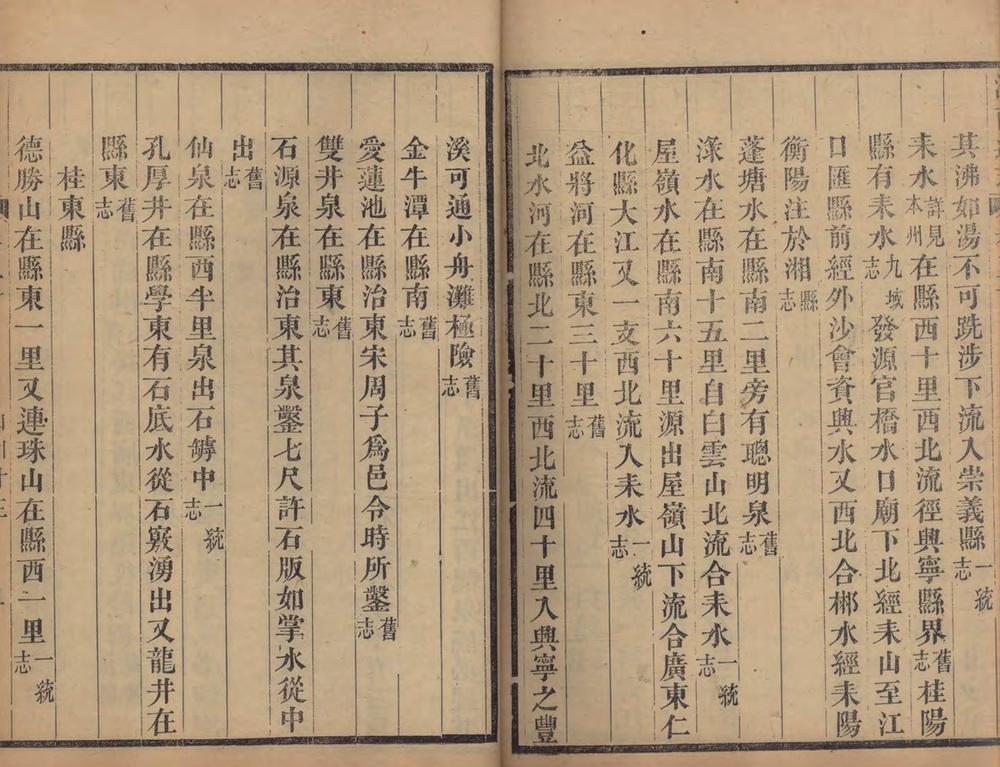 其沸如湯不可跣涉下流入崇義縣一統志
耒水詳見本州在縣西十里西北流徑興寧縣界舊志桂陽
縣有耒水九域志發源官橋水口廟下北經耒山至江
口匯縣前經外沙會資興水又西北合郴水經耒陽
衡陽注於湘縣志
蓬塘水在縣南二里旁有聰明泉舊志
淥水在縣南十五里自白雲山北流合耒水一統志
屋嶺水在縣南六十里源出屋嶺山下流合廣東仁
化縣大江又一支西北流入耒水一統志
益將河在縣東三十里舊志
北水河在縣北二十里西北流四十里入興寧之豐
溪可通小舟灘極險舊志
金牛潭在縣南舊志
愛蓮池在縣治東宋周子爲邑令時所鑿舊志
雙井泉在縣東舊志
石源泉在縣治東其泉鑿七尺許石版如掌水從中
出舊志
仙泉在縣西半里泉出石罅中一統志
孔厚井在縣學東有石底水從石竅湧出又龍井在
縣東舊志
桂東縣
德勝山在縣東一里又連珠山在縣西一里一統志